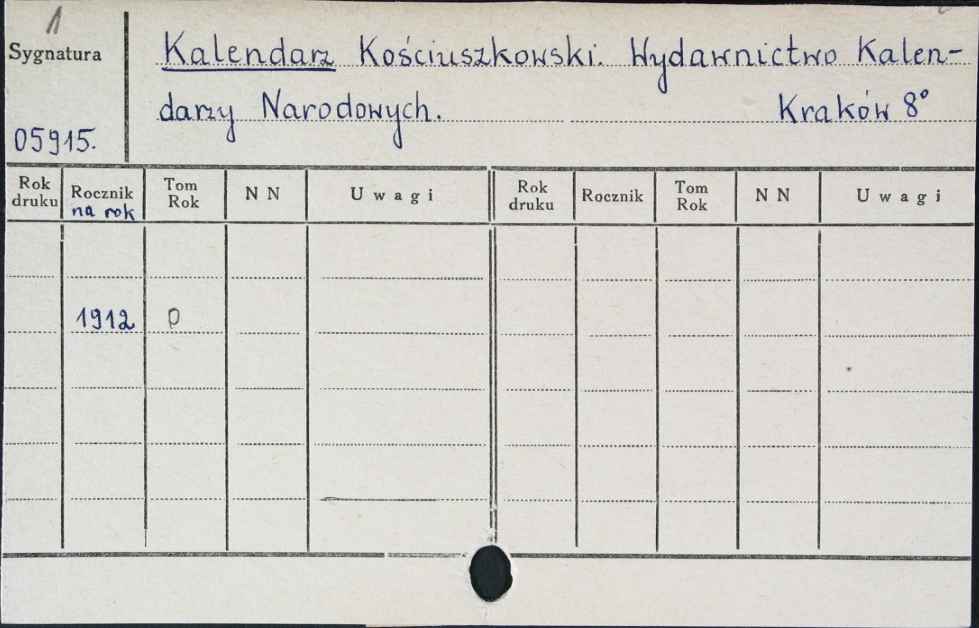 1
Sygnatura
Kalendarz Kościuszkowski. Wydawnictwo Kalen-
darzy Narodowych. Kraków 8°
05915.
Rok druku Rocznik na rok Tom Rok N N Uwagi Rok druku Rocznik Tom Rok N N Uwagi
1912 0